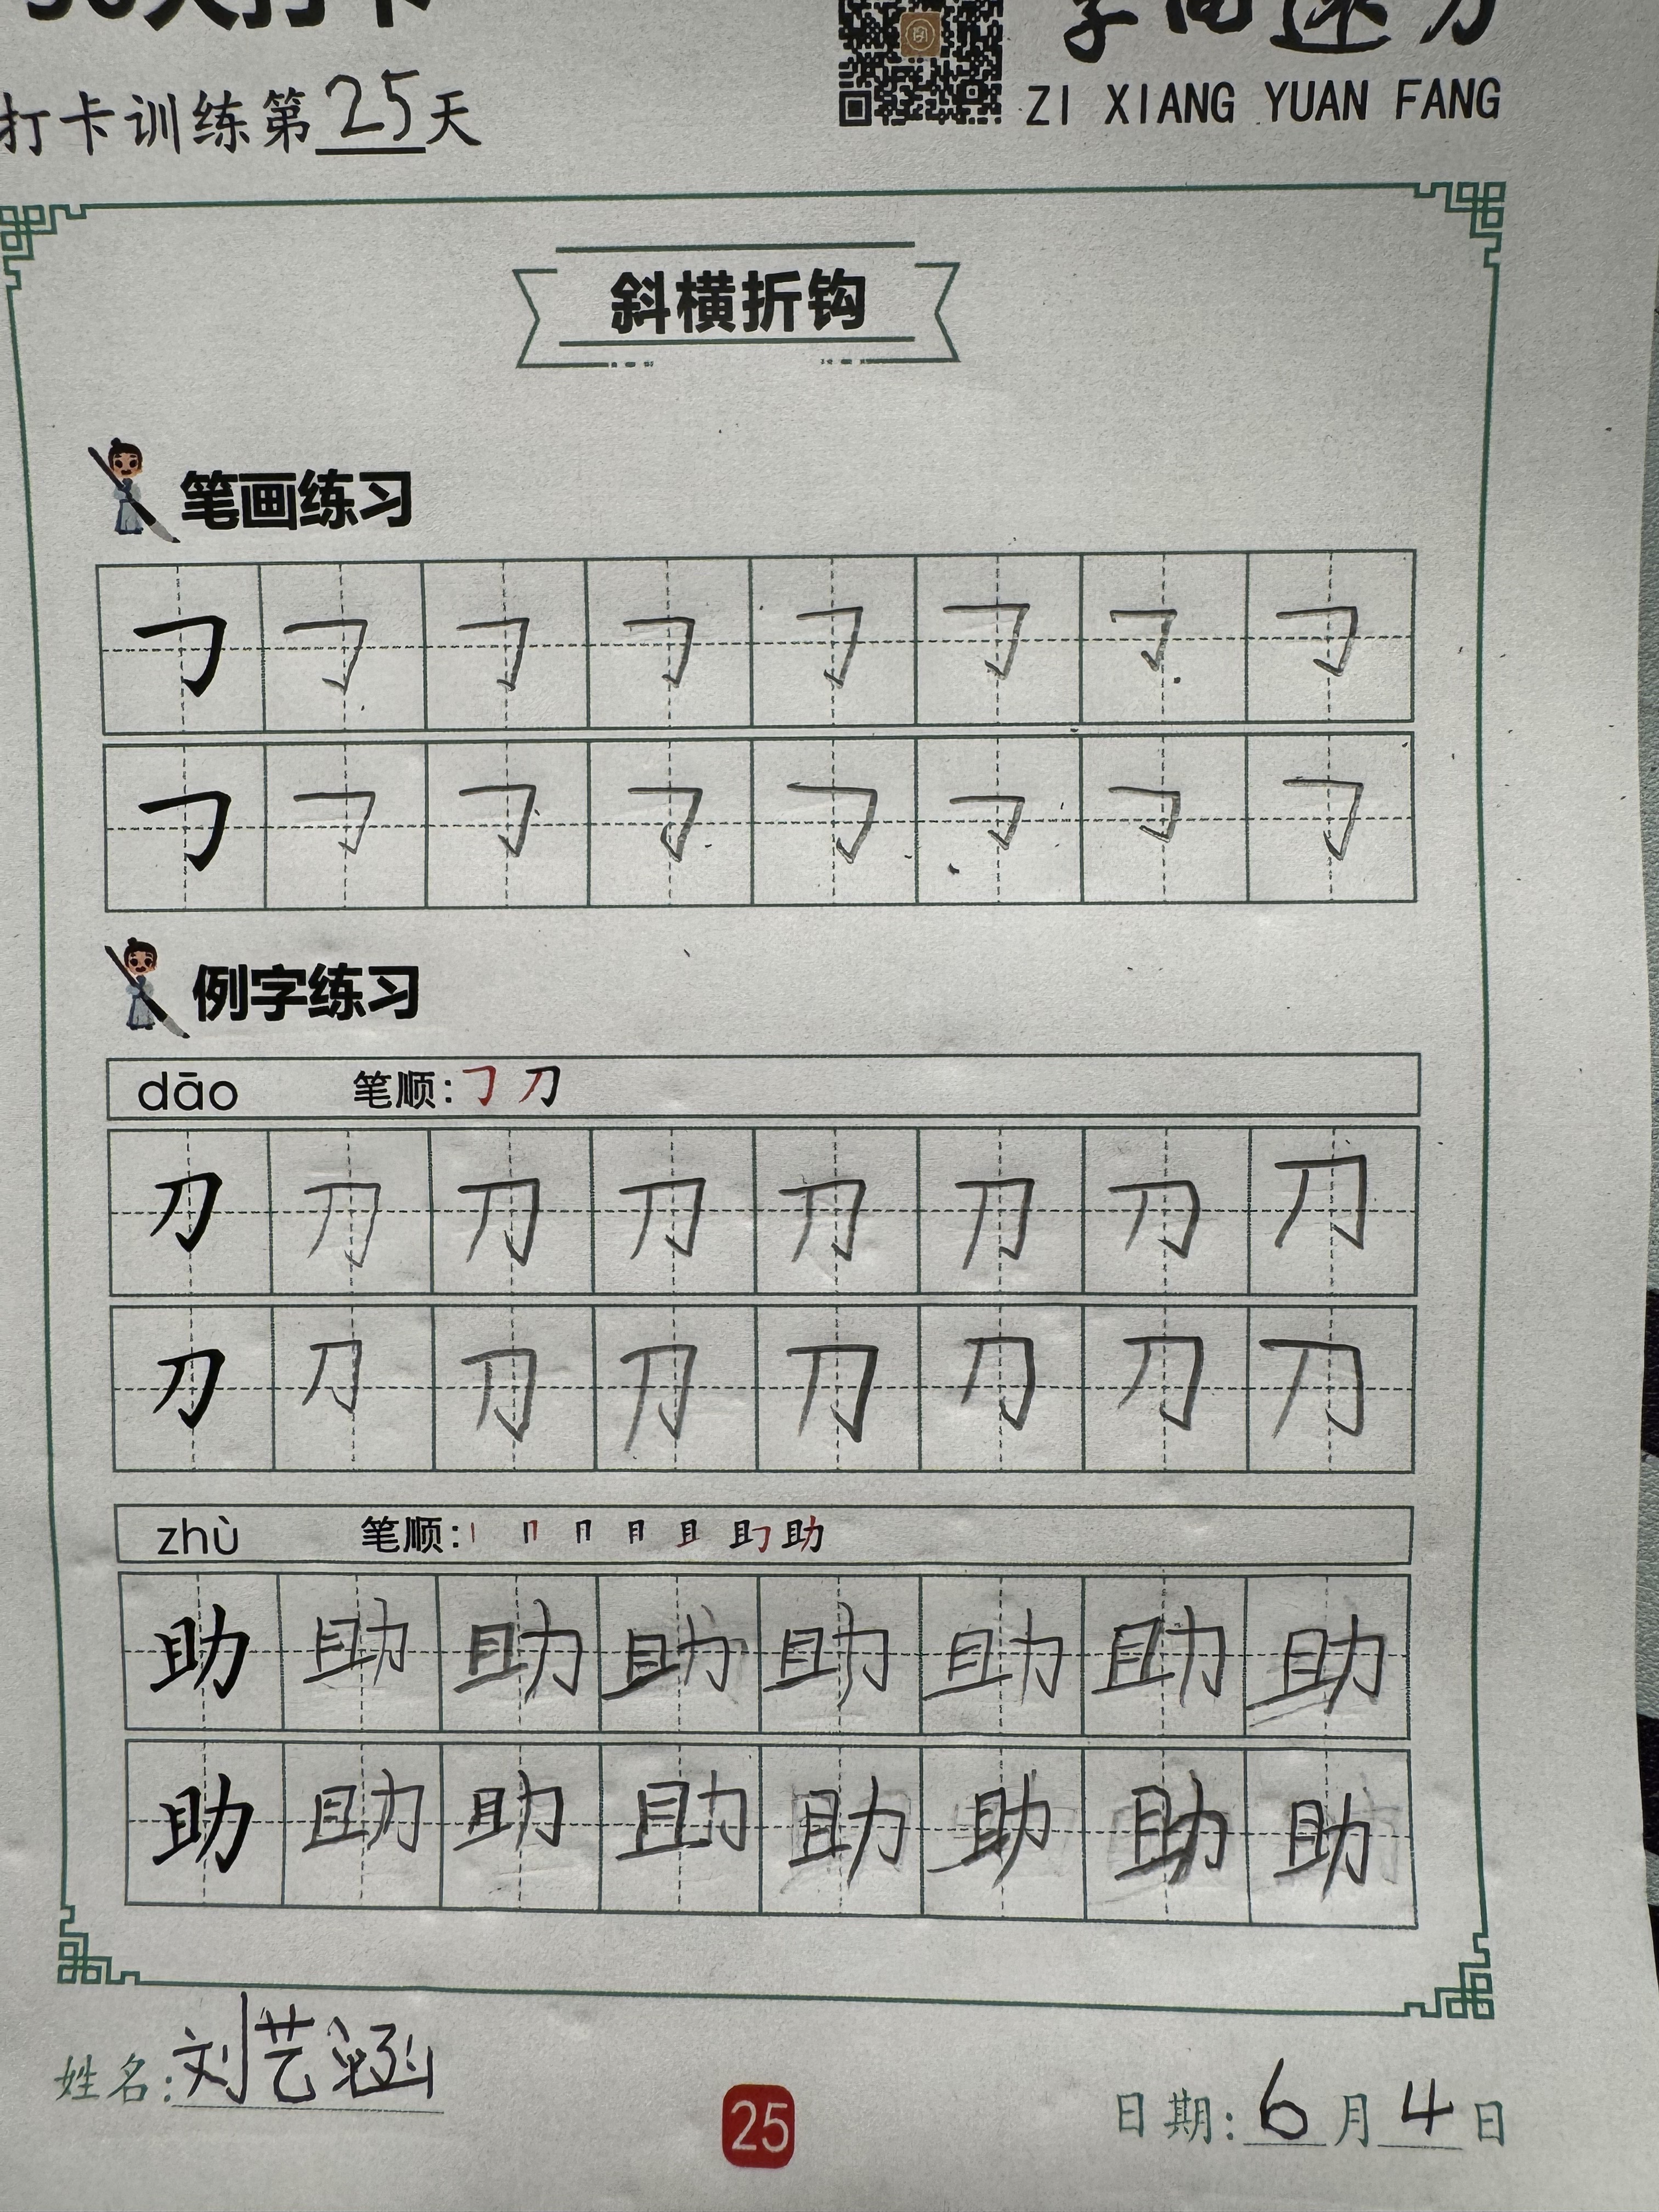 打卡训练第25天
ZI XIANG YUAN FANG
斜横折钩
笔画练习
例字练习
dāo 笔顺: 𠃌 刀
刀 刀 刀 刀 刀 刀 刀 刀
刀 刀 刀 刀 刀 刀 刀 刀
zhù 笔顺: 助
助 助 助 助 助 助 助 助
助 助 助 助 助 助 助 助
姓名: 刘艺涵
25
日期: 6月4日